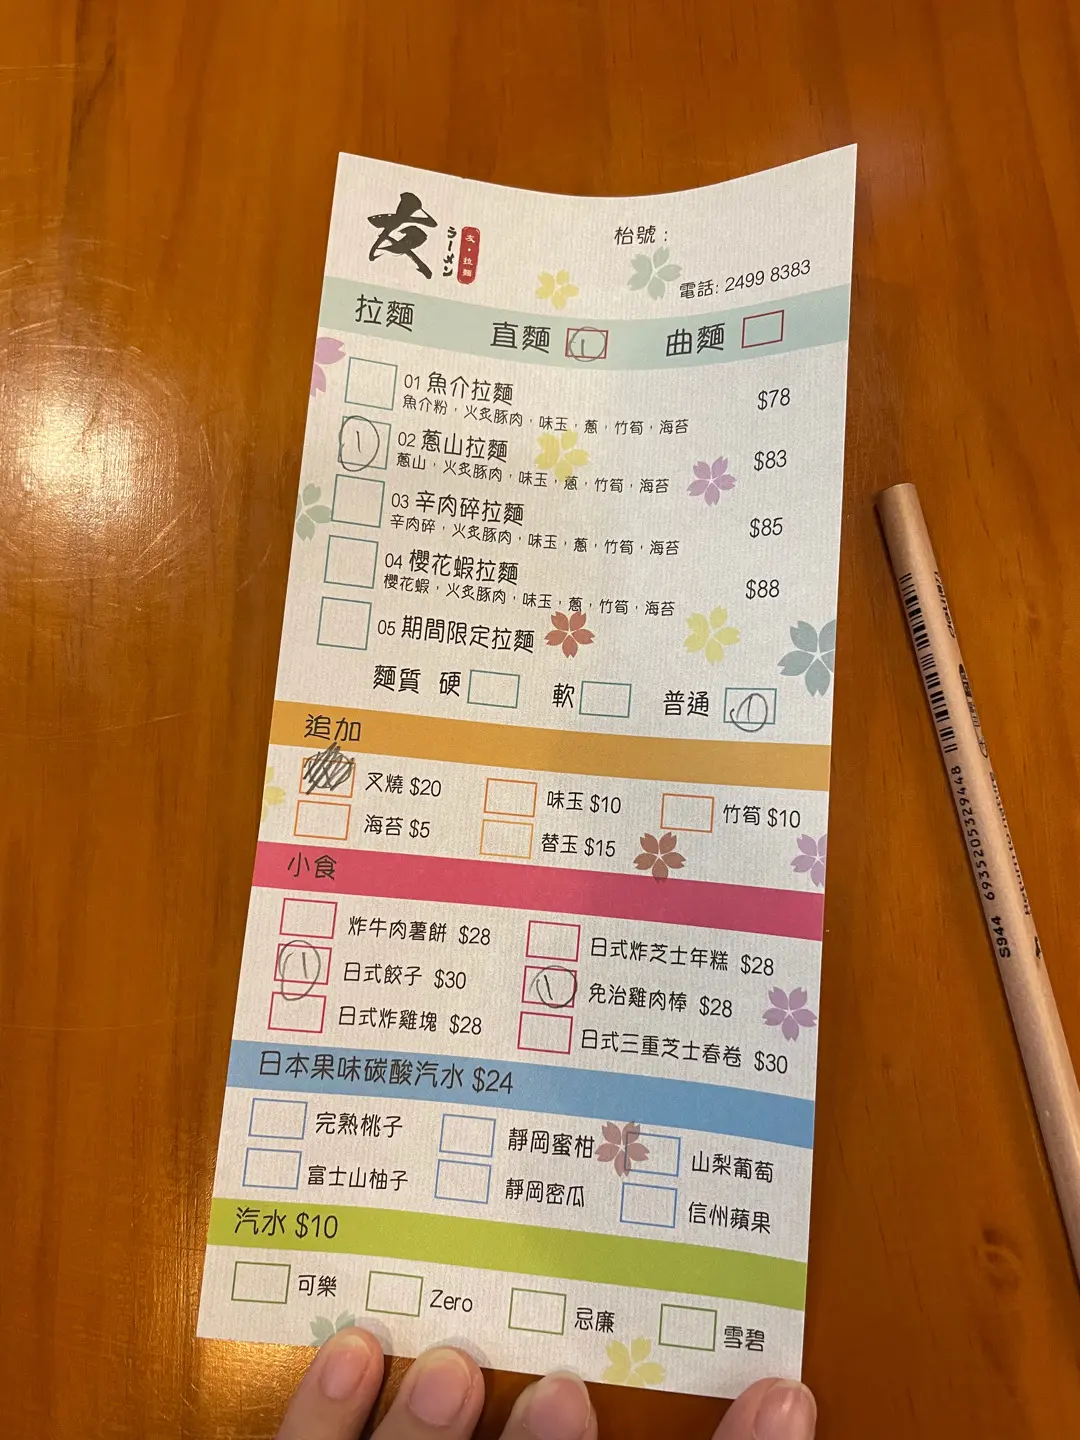 友
ラーメン
友・拉麵
枱號：
電話: 2499 8383
拉麵 直麵 1 曲麵
01 魚介拉麵 $78
魚介粉，火炙豚肉，味玉，蔥，竹筍，海苔
1 02 蔥山拉麵 $83
蔥山，火炙豚肉，味玉，蔥，竹筍，海苔
03 辛肉碎拉麵 $85
辛肉碎，火炙豚肉，味玉，蔥，竹筍，海苔
04 櫻花蝦拉麵 $88
櫻花蝦，火炙豚肉，味玉，蔥，竹筍，海苔
05 期間限定拉麵
麵質 硬 軟 普通 1
追加
叉燒 $20 味玉 $10 竹筍 $10
海苔 $5 替玉 $15
小食
炸牛肉薯餅 $28 日式炸芝士年糕 $28
1 日式餃子 $30 1 免治雞肉棒 $28
日式炸雞塊 $28 日式三重芝士春卷 $30
日本果味碳酸汽水 $24
完熟桃子 靜岡蜜柑 山梨葡萄
富士山柚子 靜岡密瓜 信州蘋果
汽水 $10
可樂 Zero 忌廉 雪碧
S944 6935205329448